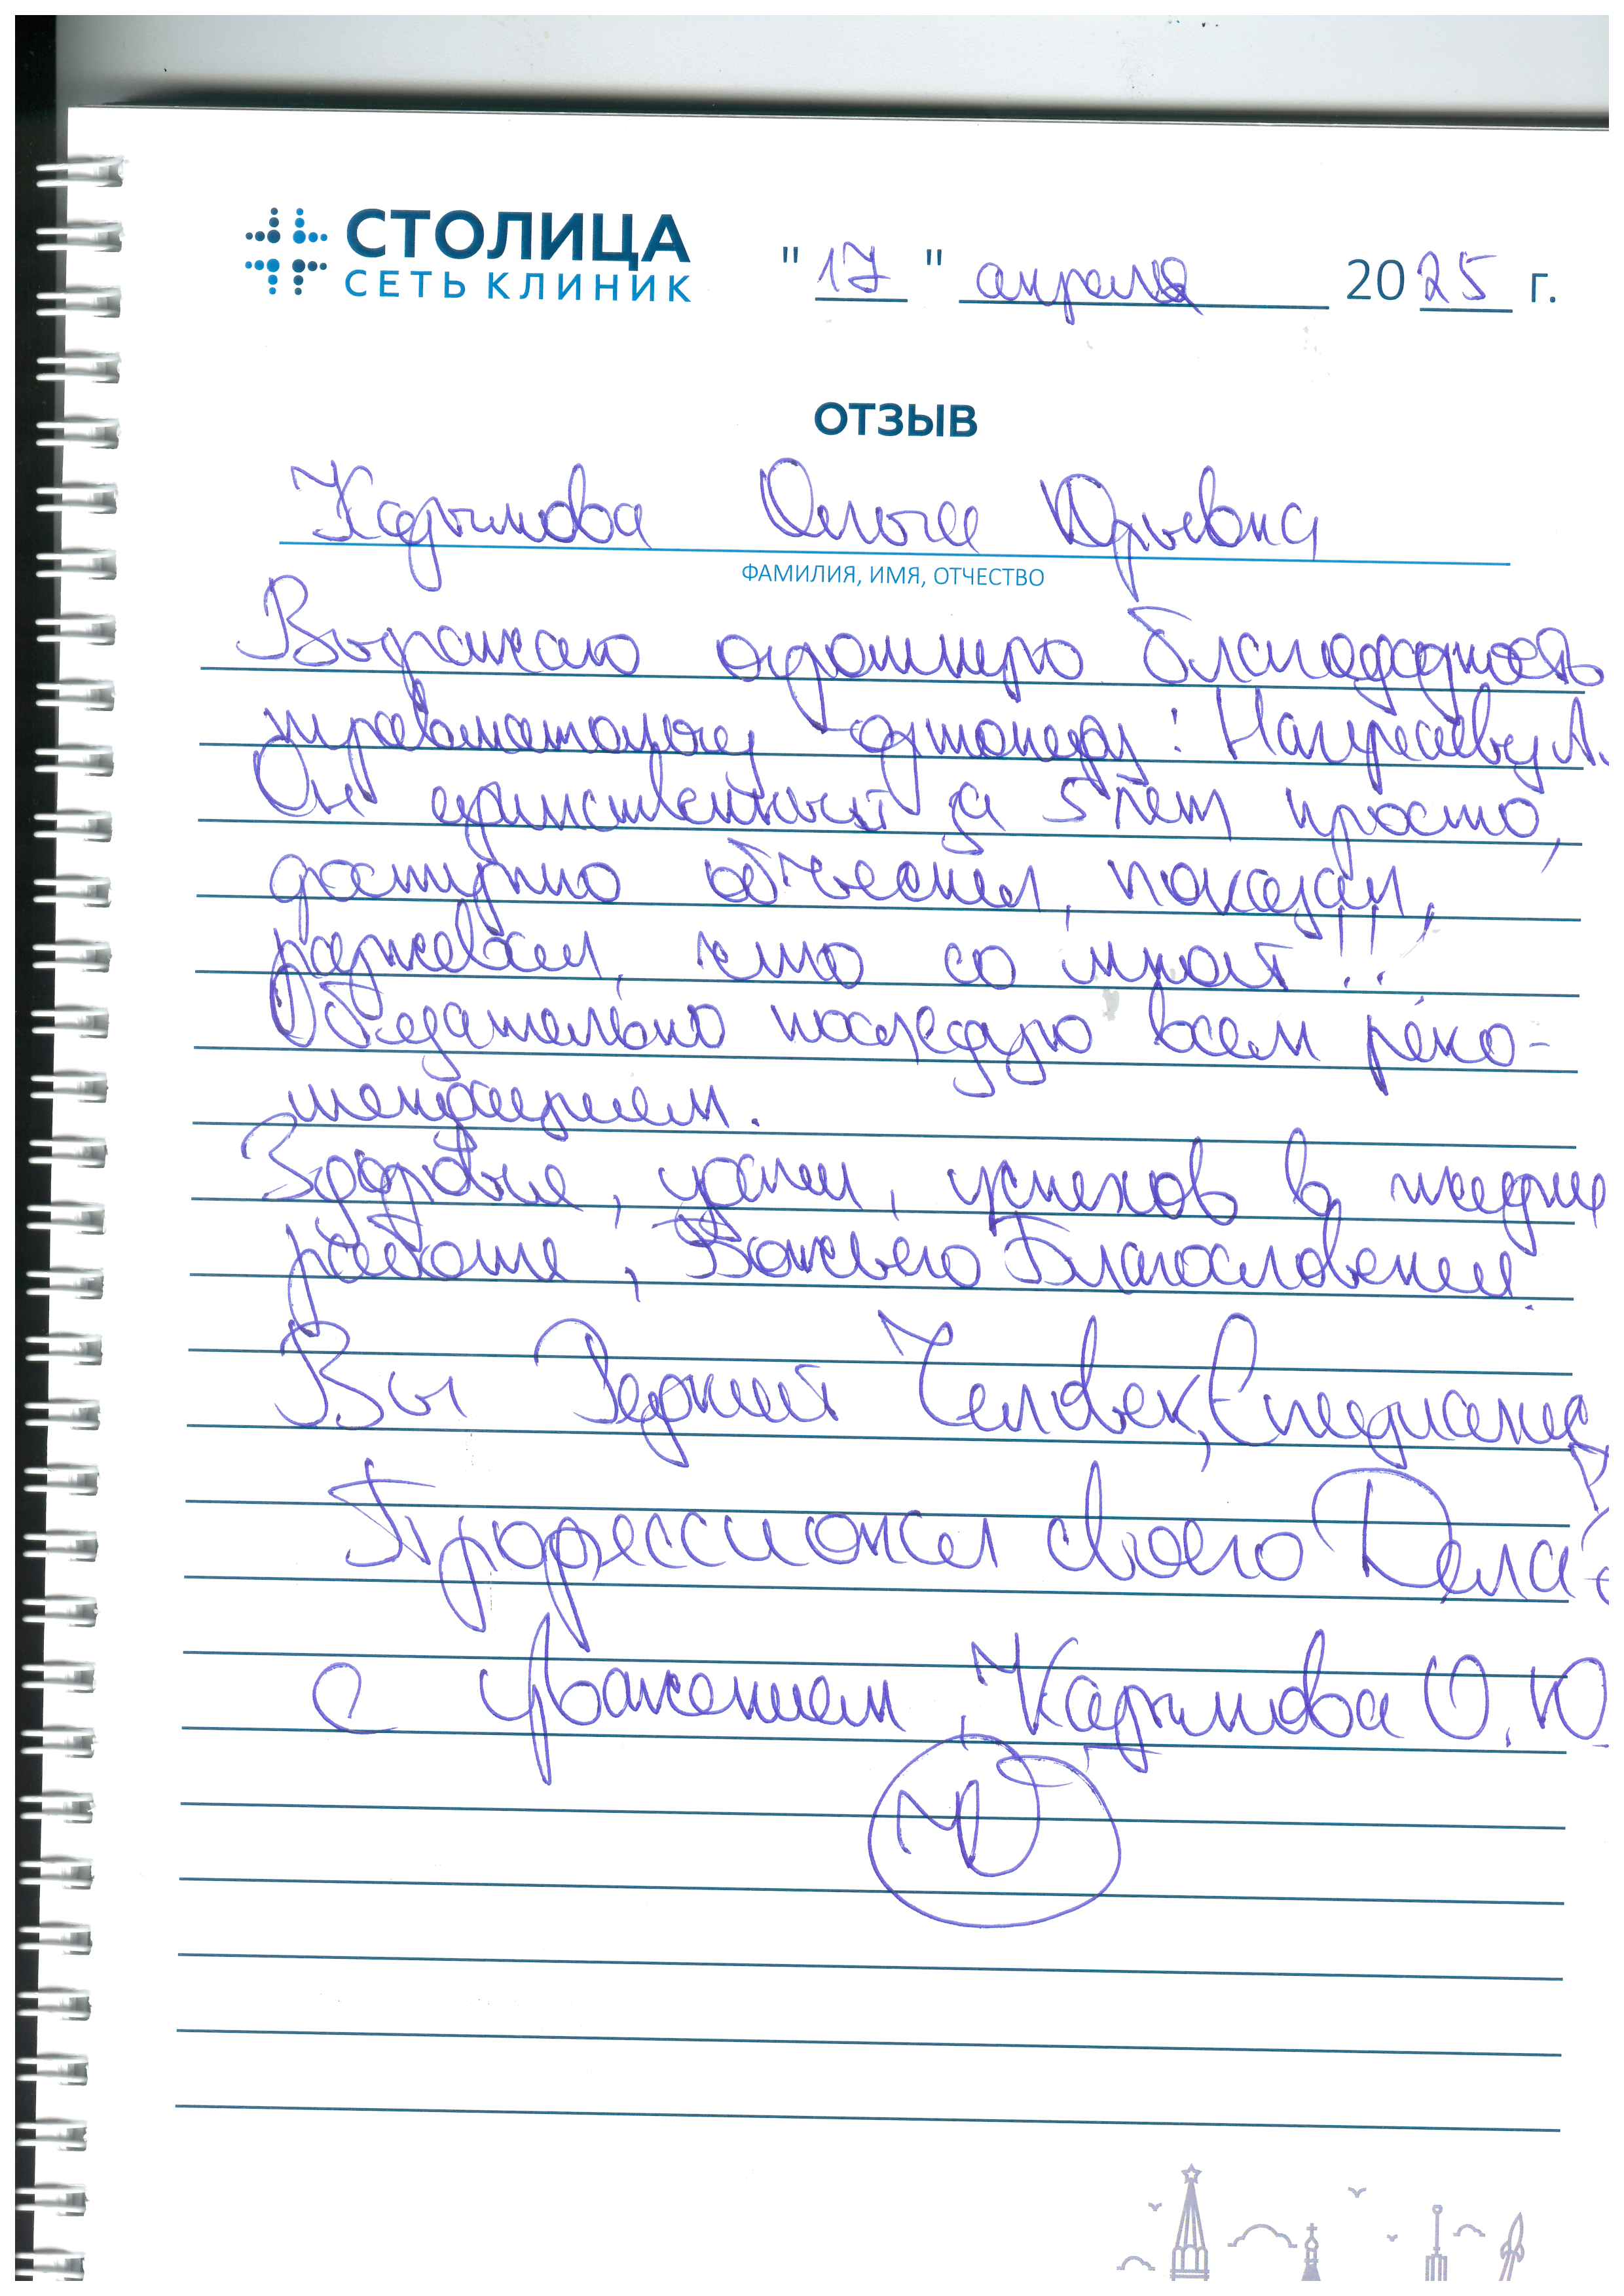 СТОЛИЦА
СЕТЬ КЛИНИК
"17" апреля 2025 г.
ОТЗЫВ
Карымова Ольга Юрьевна
ФАМИЛИЯ, ИМЯ, ОТЧЕСТВО
Выражаю огромную благодарность
травматологу -ортопеду:
Он единственный за 5 лет просто,
доступно объяснил, показал,
разжевал, что со мной!!
Обязательно последую всем реко-
мендациям.
Здоровья, удачи, успехов в жизни
работе, Божьего Благословения.
Вы Редкий Человек,
Профессионал своего Дела
С уважением, Карымова О.Ю